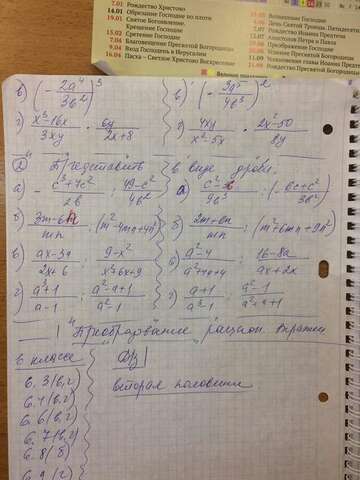 7.01 Рождество Христово
14.01 Обрезание Господне по плоти
19.01 Святое Богоявление.
Крещение Господне
15.02 Сретение Господне
7.04 Благовещение Пресвятой Богородицы
9.04 Вход Господень в Иерусалим
16.04 Пасха – Светлое Христово Воскресение
Вознесение Господне
День Святой Троицы. Пятидесятница
Рождество Иоанна Предтечи
Апостолов Петра и Павла
Преображение Господне
Успение Пресвятой Богородицы
Усекновение главы Иоанна Предтечи
Рождество Пресвятой Богородицы
в) (- 2a⁴/3b²)³ в) (- 3a⁵/4b³)²
г) (x³-16x)/3xy · 6y/(2x+8) г) 4xy/(x²-5x) · (2x²-50)/8y
② Представить в виде дроби.
а) - (c³+7c²)/2b : (49-c²)/4b² а) : (-6c+c²)/3b²
б) : (m²-4mn+4n²) б) (2m+6n)/mn : (m²+6mn+9n²)
в) : (9-x²)/(x²+6x+9) в) (a²-4)/(a²+4a+4) : (16-8a)/(ax+2x)
г) (a³+1)/(a-1) : (a²-a+1)/(a²-1) г) (a+1)/(a³-1) : (a²-1)/(a²+a+1)
"Преобразование рацион. выражен
в классе Д/з
6.3(в,г) вторая половина
6.4(в,г)
6.6(в,г)
6.7(в,г)
6.8(б)
6.9(г)